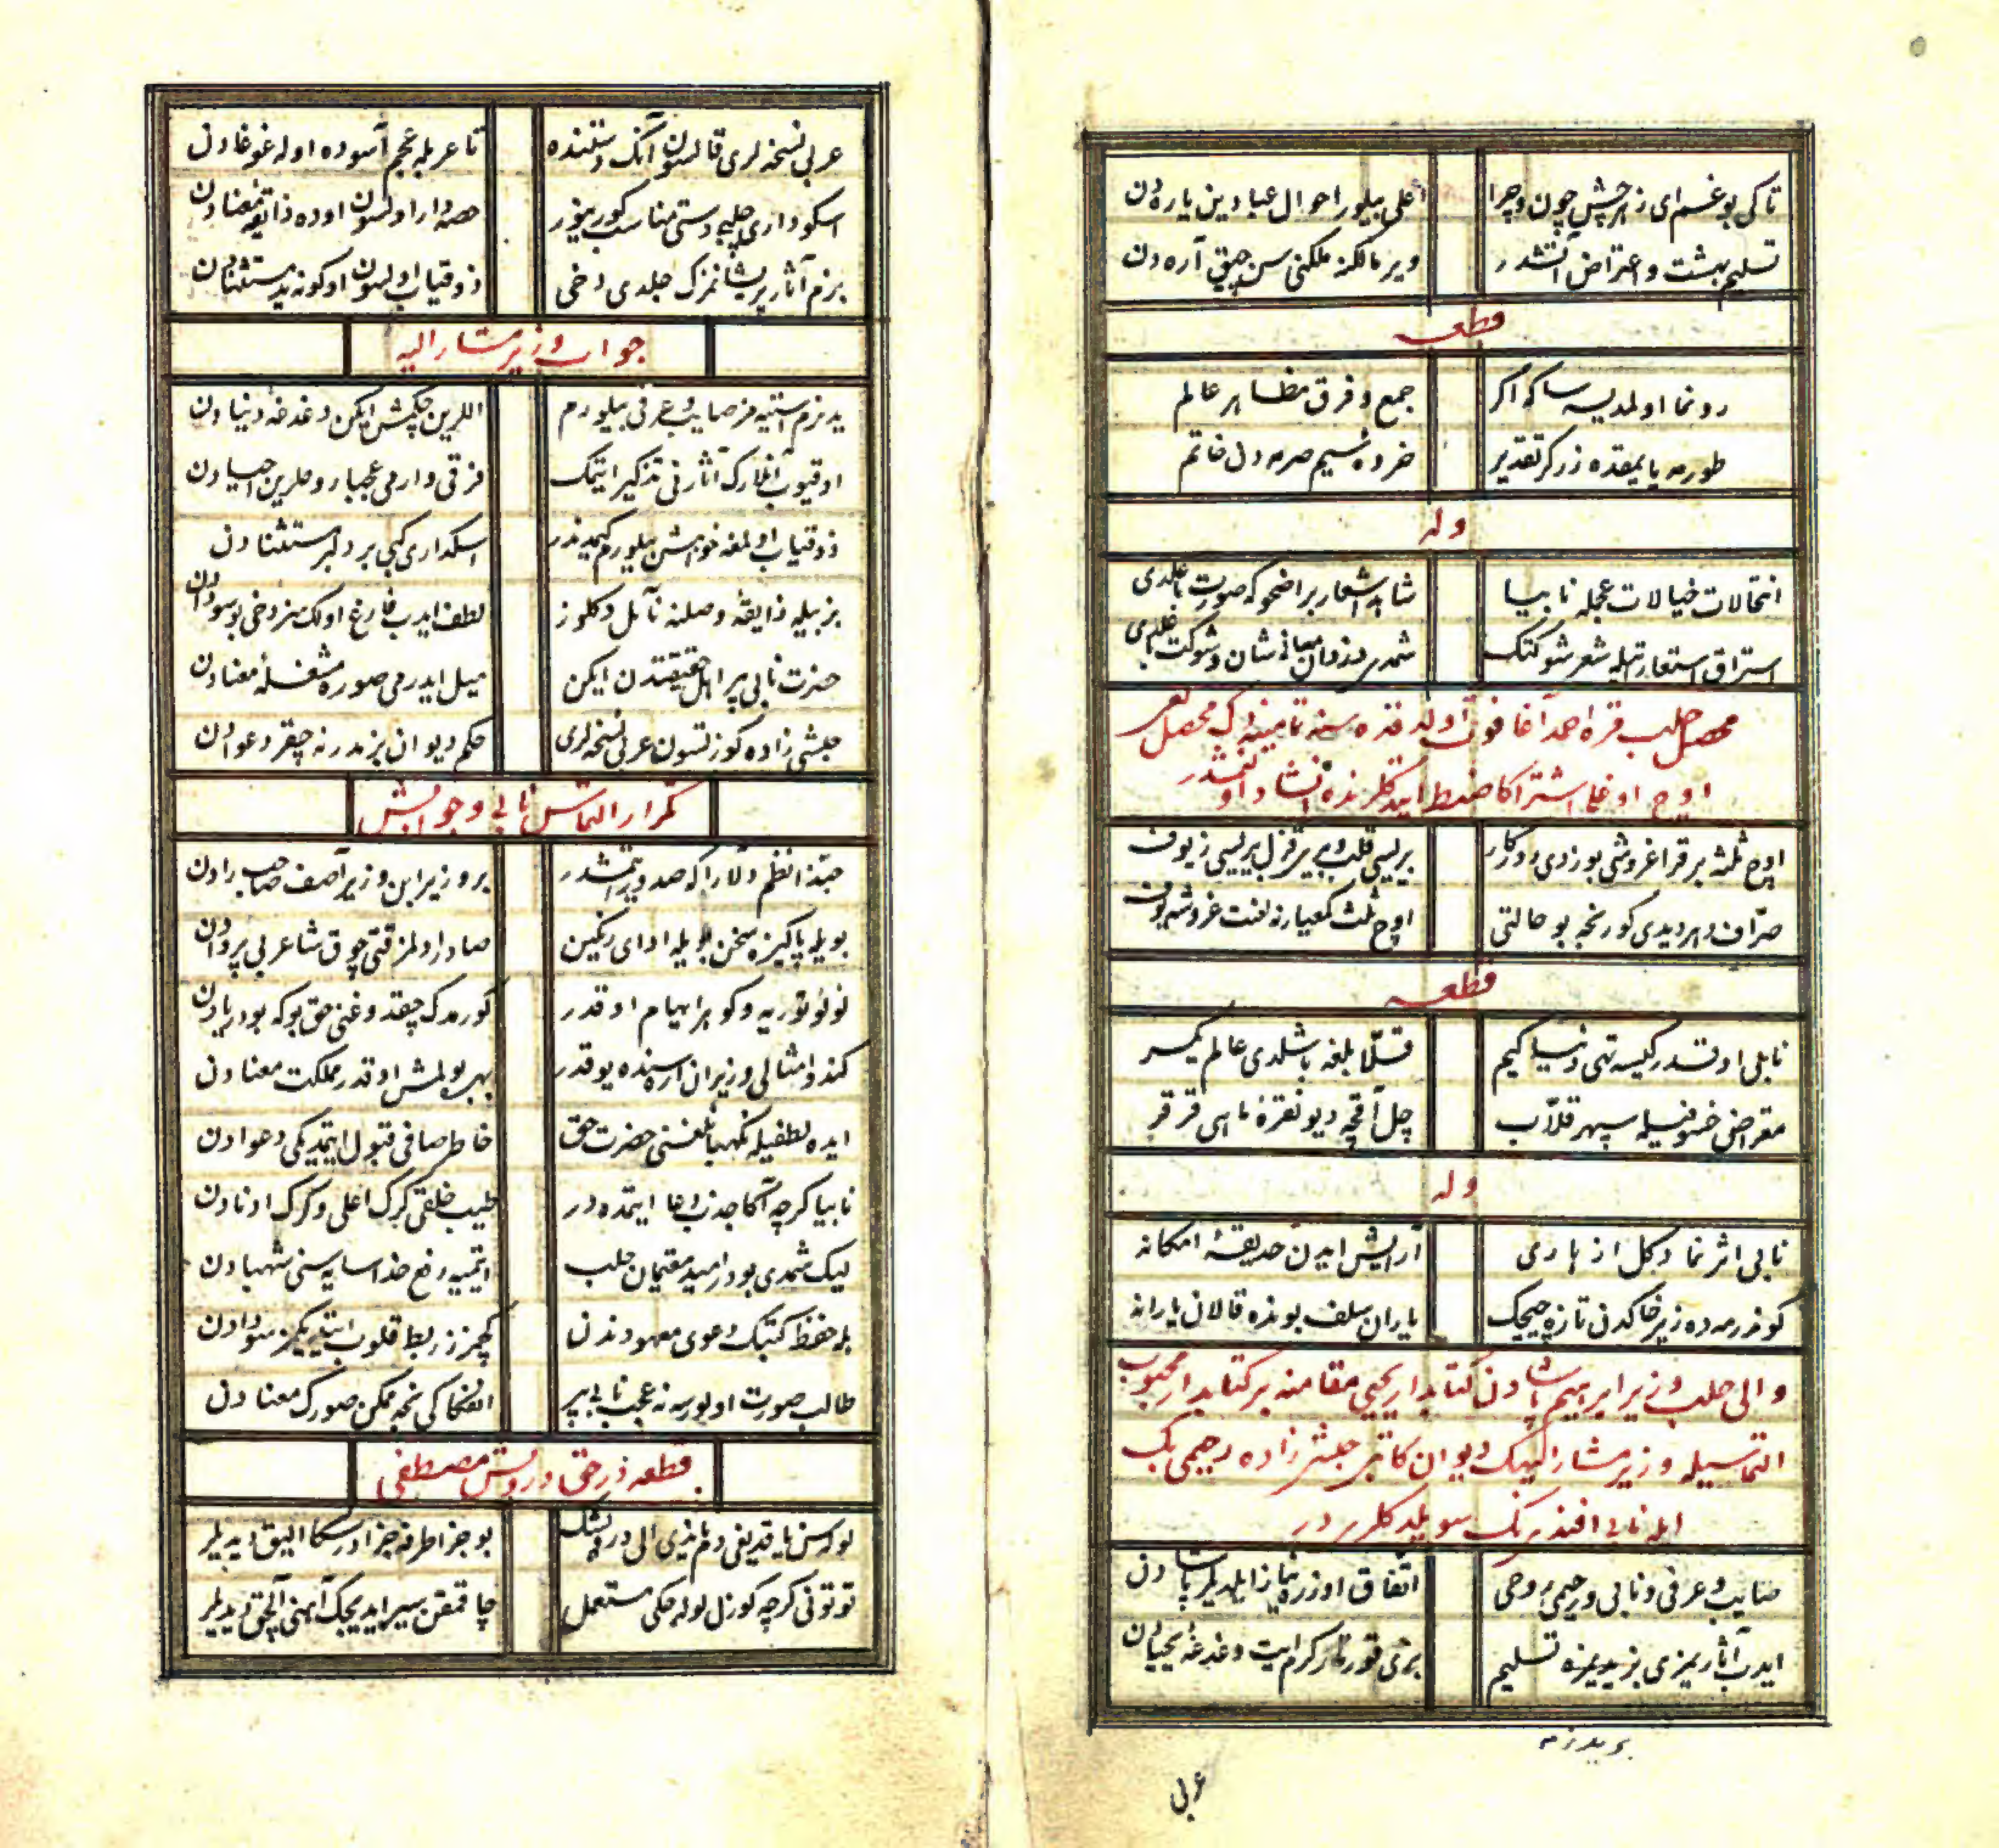 تاکی بو غم ای زهرچش چون و چرا
اعلی بیلور احوال عبادین یارادن
تسلیم بهشت و اعتراض آتشدر
ویر مالکنه ملکنی سن چیق آرەدن
قطعه
رونما اولمدیسه ساکه اکر
جمع و فرق مظاهر عالم
طورمه یا یمقده زرکر تقدیر
خرده سیم صرمەدن خاتم
وله
انتحالات خیالات عجمله نابیا
شاهد اشعار بر اضحوکه صورت باغلدی
استراق استعاراتیله شعر شوکتک
شمدی دزدان معانی شان و شوکت باغلدی
محصل حلب قره احمد آغا فوت اولدقده سنه تمامینەدک محصللغی
اوچ اوغلی اشتراکا ضبط ایتدکلرنده انشاد اولنمشدر
اوچ ثلثه بر قرا غروشی بوزدی روزکار
بریسی قلب و بری قزل بریسی زیوف
صرّاف دهر دیدی کورنجه بو حالتی
اوچ ثلث کمعیارنه لعنت غروشه یوف
قطعه
نابی او قدر کیسه تهی دنیا کیم
قلّابلغه باشلدی عالم یکسر
مقراض خسوفیله سپهر قلّاب
چل آقچه دیو نقرۀ ماهی قرقر
وله
نابی اثر نما دکل ازهاری
آرایش ایدن حدیقۀ امکانه
کوندرمەده زیر خاکدن تازه چیچک
یاران سلف بونده قالان یارانه
والی حلب وزیر ابراهیم پاشادن کتابدار یحیی مقامنه بر کتابدار محبوب
التماسیله وزیر مشار الیهک دیوان کاتبی حبشی زاده رحیمی بک
ایله نابی افندینک سویلدکلریدر
صایب و عرفی و نابی و رحیمی روحی
اتفاق اوزره نیاز ایلدیلر پاشادن
ایدب آثاریمزی بزیدیمزه تسلیم
بزی قورتار کرم ایت دغدغۀ یحیادن
عربی
عربی نسخەلری قالسون آنک دستنده
تا عربله عجم آسوده اوله غوغادن
اسکوداری چلبی دستی مناسب کورینور
حصەدار اولسون اوده ذایقۀ معنادن
بزم آثار پریشانمزک جلدی دخی
ذوقیاب اولسون او کونه ید مستثنادن
جواب وزیر مشار الیه
ید بزم استیەمز صایب و عرفی بیلورم
اللرین چکمش ایکن دغدغۀ دنیادن
اوقیوب آنلارک آثارنی تذکیر ایتمک
فرقی وارمی عجبا روحلرین احیادن
ذوقیاب اولمغه خواهش بیلورم کیمدندر
اسکداری کبی بر دلبر مستثنادن
بزبیله ذایقۀ وصلنه نآیل دکلوز
لطف ایدب فارغ اولک سز دخی بو سودادن
حضرت نابی پر اهل حقیقتدن ایکن
میل ایدرمی صوره مشغلۀ معنادن
حبشی زاده کوزتسون عربی نسخەلری
حکم دیوان بزمدر نه چیقر دعوادن
تکرار التماس نابی و جوابش
حبّذا نظم دلارا که صدور ایتمشدر
بر وزیر ابن وزیر آصف صاحب رادن
بویله پاکیزه سخن بویله ادای رنکین
صادر اولمز قتی چوق شاعر بی پروادن
لؤلؤ توریه و کوهر ایهام او قدر
کورمدک چیقدوغنی حق بو که بو دریادن
کندو امثالی وزیران ارەسنده یوقدر
بهره بولمش او قدر مملکت معنادن
ایده لطفیله نکهبانلغنی حضرت حق
خاطر صافی قبول ایتمدیکی دعوادن
نابیا کرچه آکا جذب دعا ایتمەده در
حلب خلقی کرک اعلی و کرک ادنادن
لیک شمدی بودر امید مقیمان حلب
ایتمیه رفع خدا سایەسنی شهبادن
بله حفظ کتبک دعوی معهودندن
کچمزز ربط قلوب ایتدیکمز سودادن
طالب صورت اولورسه نه عجب نابی پیر
انفکاکی نجه ممکن صورک معنادن
قطعه در حق درویش مصطفی
لولەسن یاقدیغی دم یاندی الی درویشک
بو جزا طرفه جزادر سکا الیق دیدیلر
توتونی کرچه کوزل لولەجکی مستعمل
چاقمغن سیر ایدیجک آهنی آلچق دیدیلر